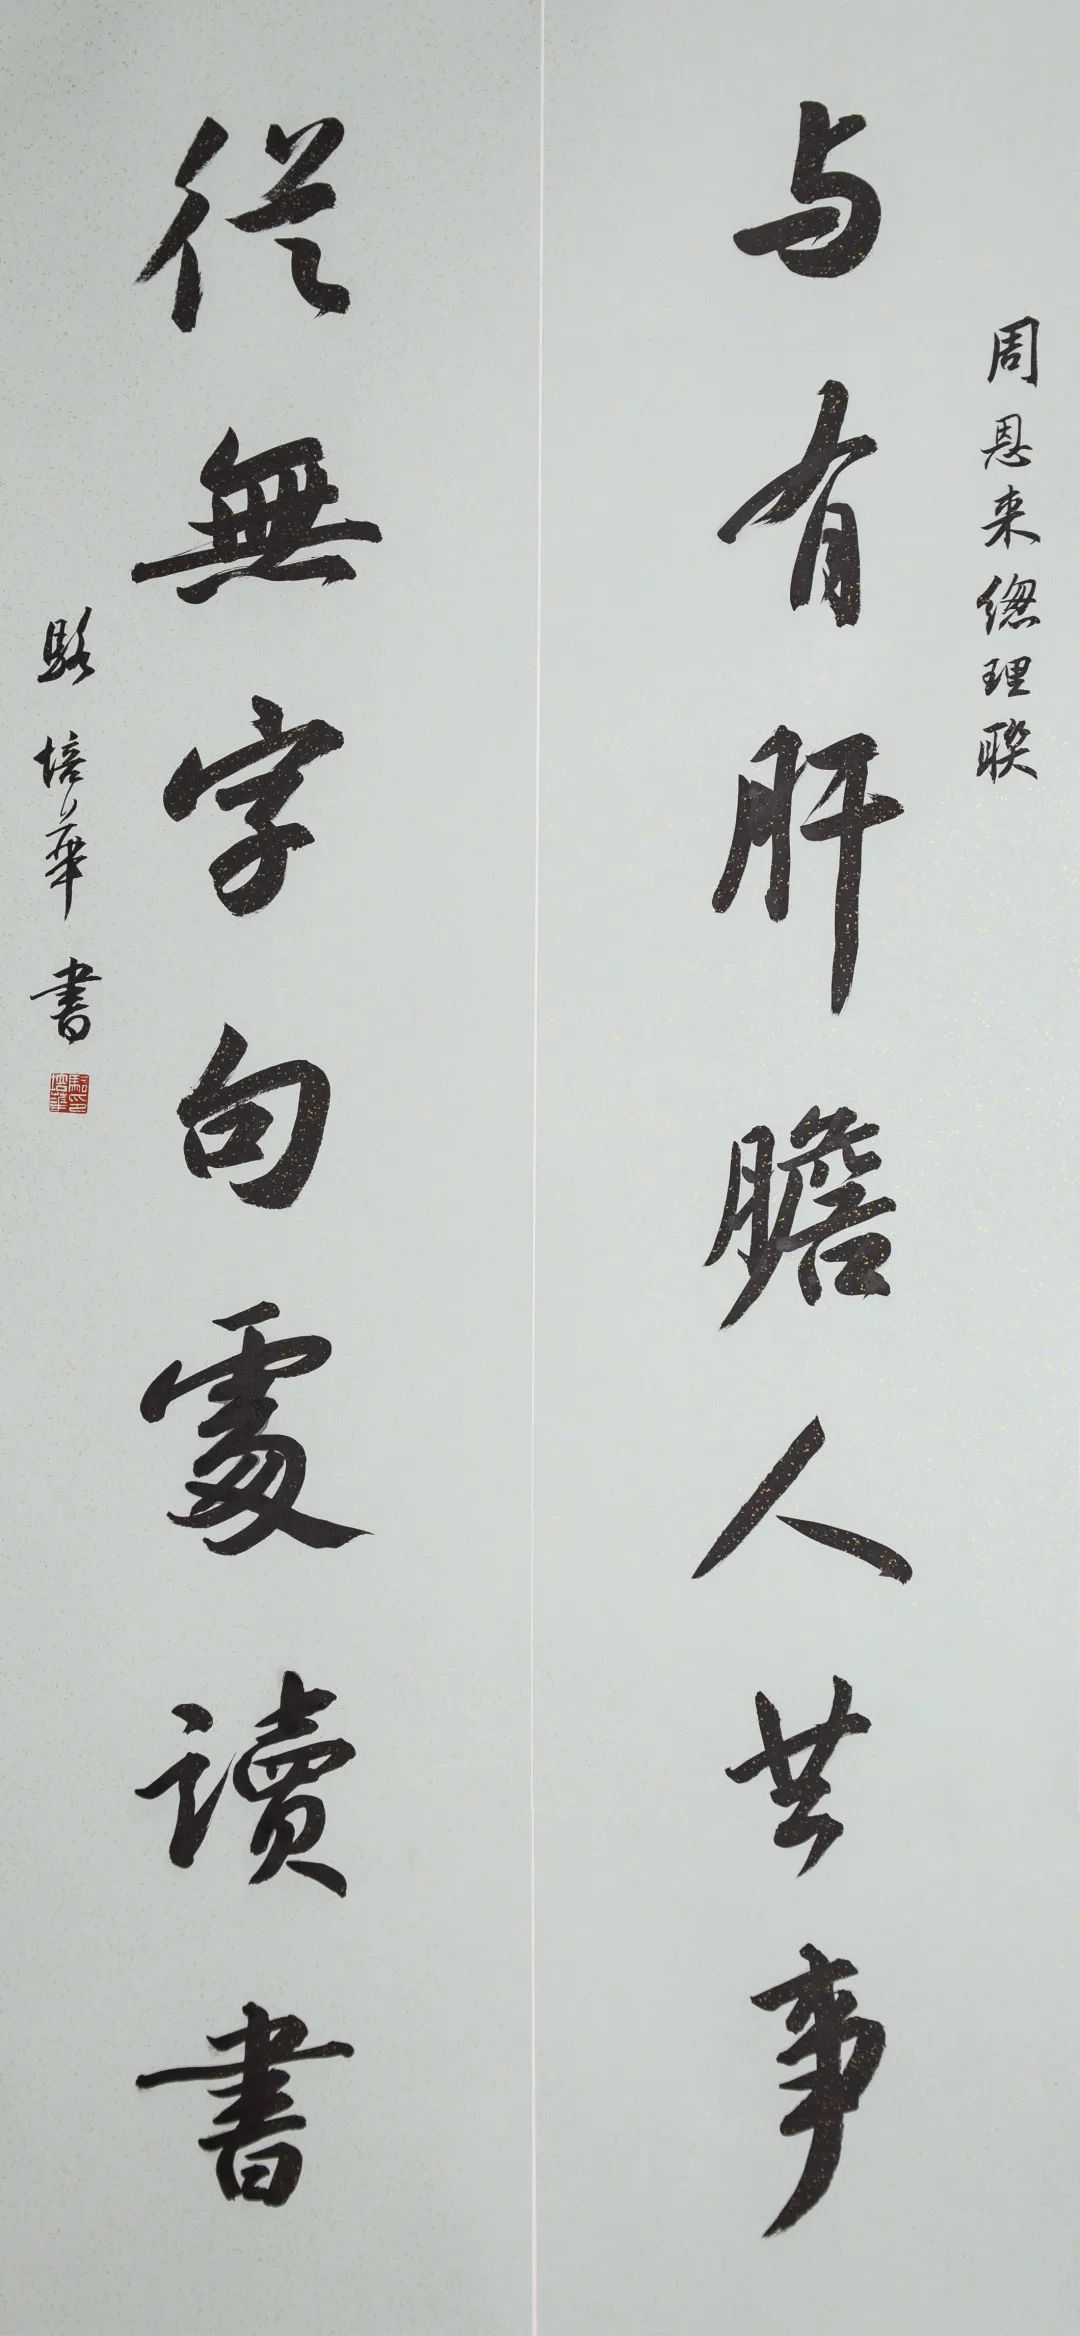 周恩来總理联
与有肝膽人共事
從無字句處讀書
駱培華書
駱培華印